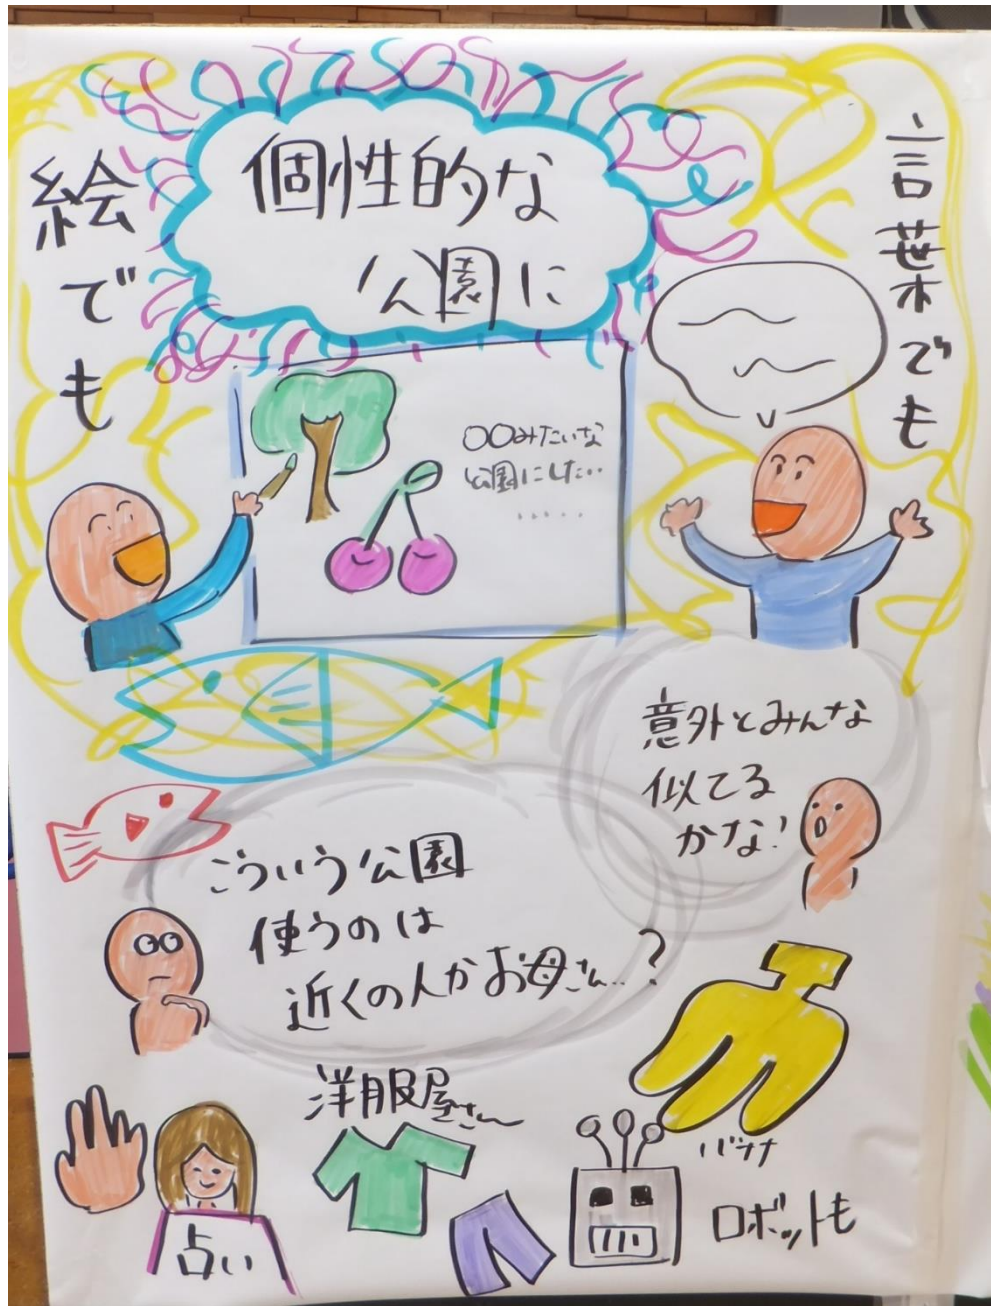 個性的な
公園に
絵でも
言葉でも
〇〇みたいな
公園にしたい…
.....
意外とみんな
似てる
かな!
こういう公園
使うのは
近くの人かお母さん…?
洋服屋さん
バナナ
占い
ロボットも